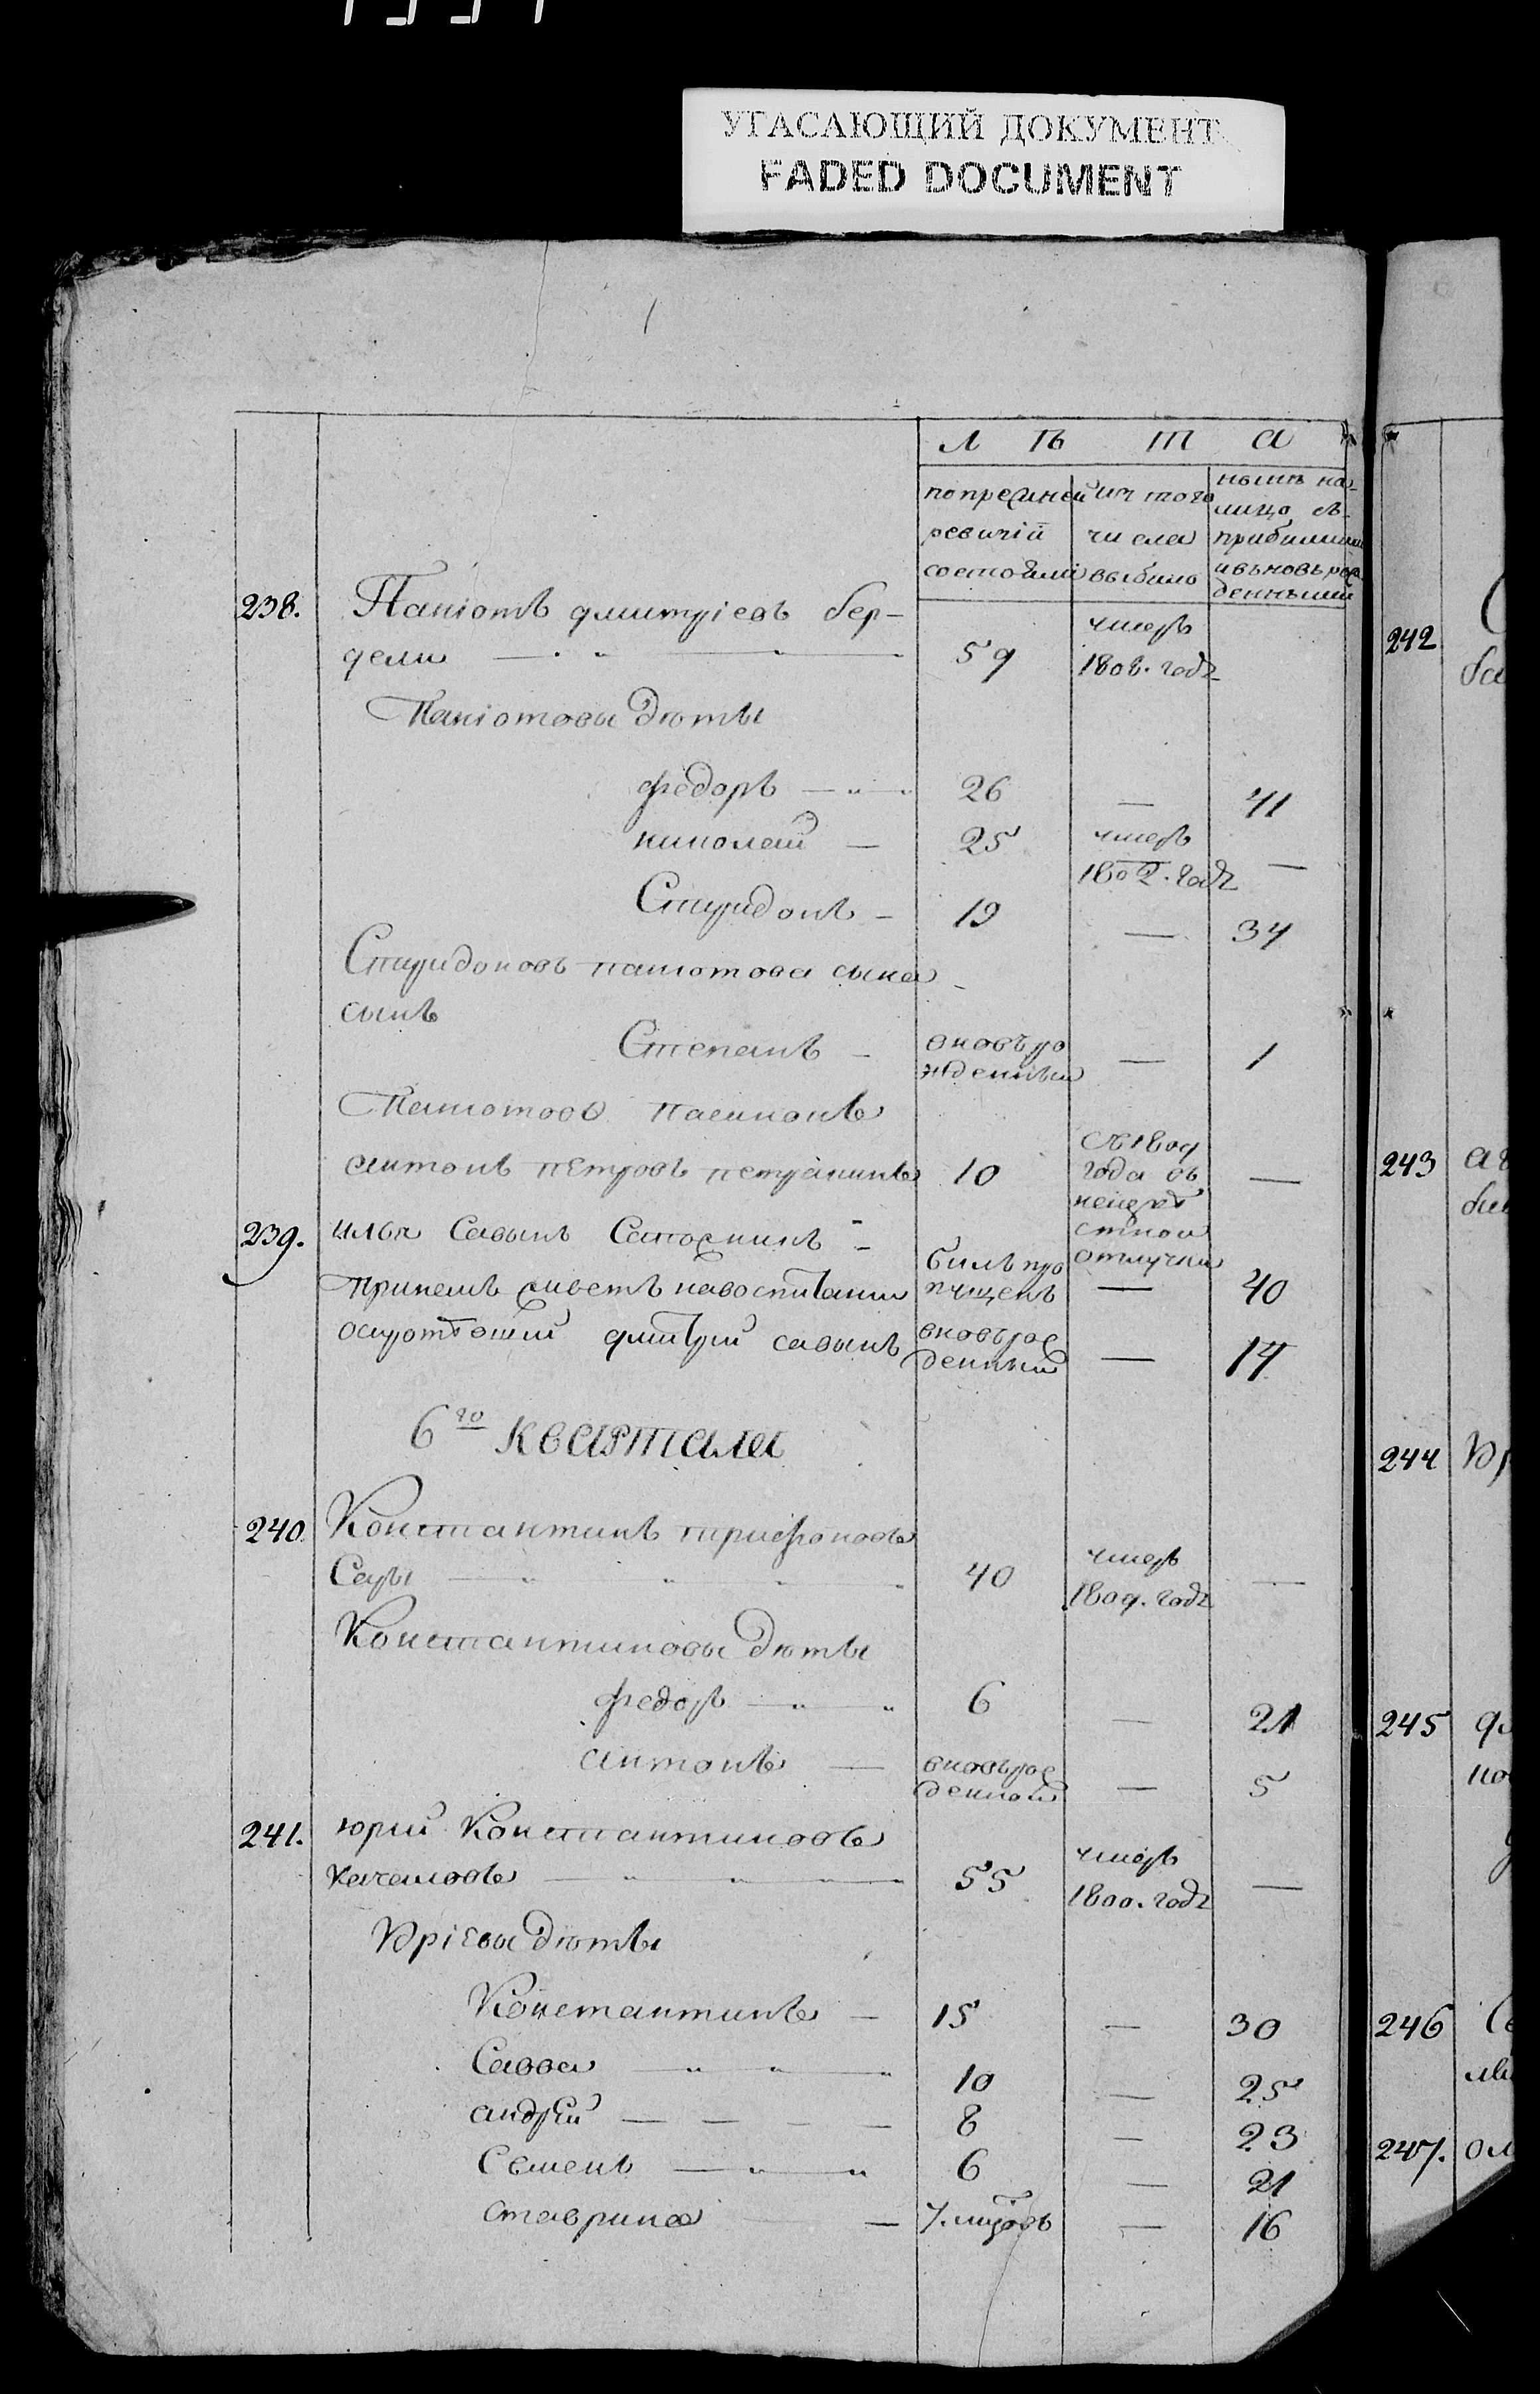 УГАСАЮЩИЙ ДОКУМЕНТ
FADED DOCUMENT
Л Ѣ Т А
по преждней ревизіи состояли
из того числа выбыло
нынѣ на лицо съ прибылыми и вновь рожденными
238. Паніотъ дмитріевъ бер-
дели 59 умеръ 1808. года
Паніотовы дѣти
федоръ 26 — 41
николай — 25 умеръ 1802. года —
Спиридонъ — 19 — 34
Спиридоновъ паниотова сына
сынъ
Степанъ — вновь рожденный — 1
Паниотовъ
антонъ петровъ 10 съ 1809 года въ неизвѣстной отлучки —
239. илья Савынъ — былъ пропущенъ — 40
осиротѣвший дмитрий савынъ вновь рожденный — 14
6го квартала
240. Константинъ трифоновъ
40 умеръ 1809. года —
Константиновы дѣти
федоръ 6 — 21
антонъ — вновь рожденной — 5
241. юрий Константиновъ
качаловъ 55 умеръ 1800. года —
Юріевы дѣти
Константинъ — 15 — 30
Савва 10 — 25
андрѣй 8 — 23
Семенъ 6 — 21
ставрина — 16
242
243
244
245
246
247.